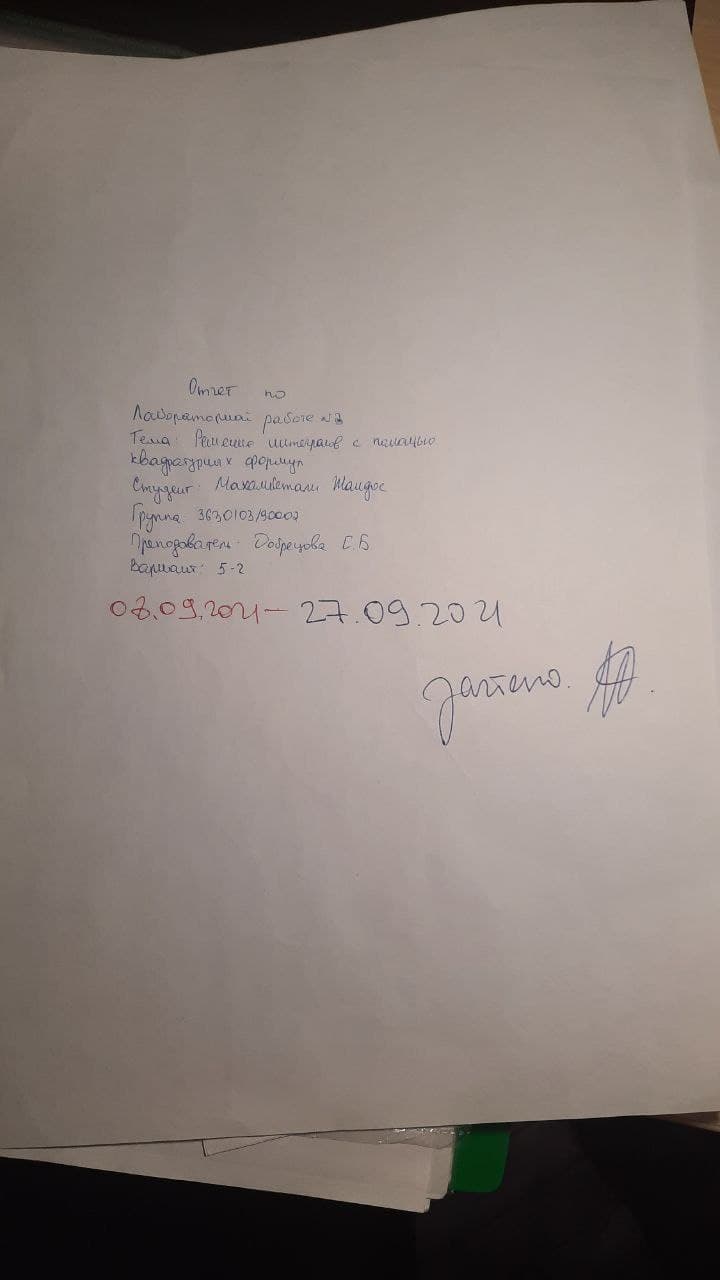 Отчет по
Лабораторной работе №3
Тема: Решение интегралов с помощью
квадратурных формул
Студент: Махамбетали Жандос
Группа: 3630103/90002
Преподователь: Добрецова С.Б
Вариант: 5-2
08.09.2021 — 27.09.2021
зачтено.